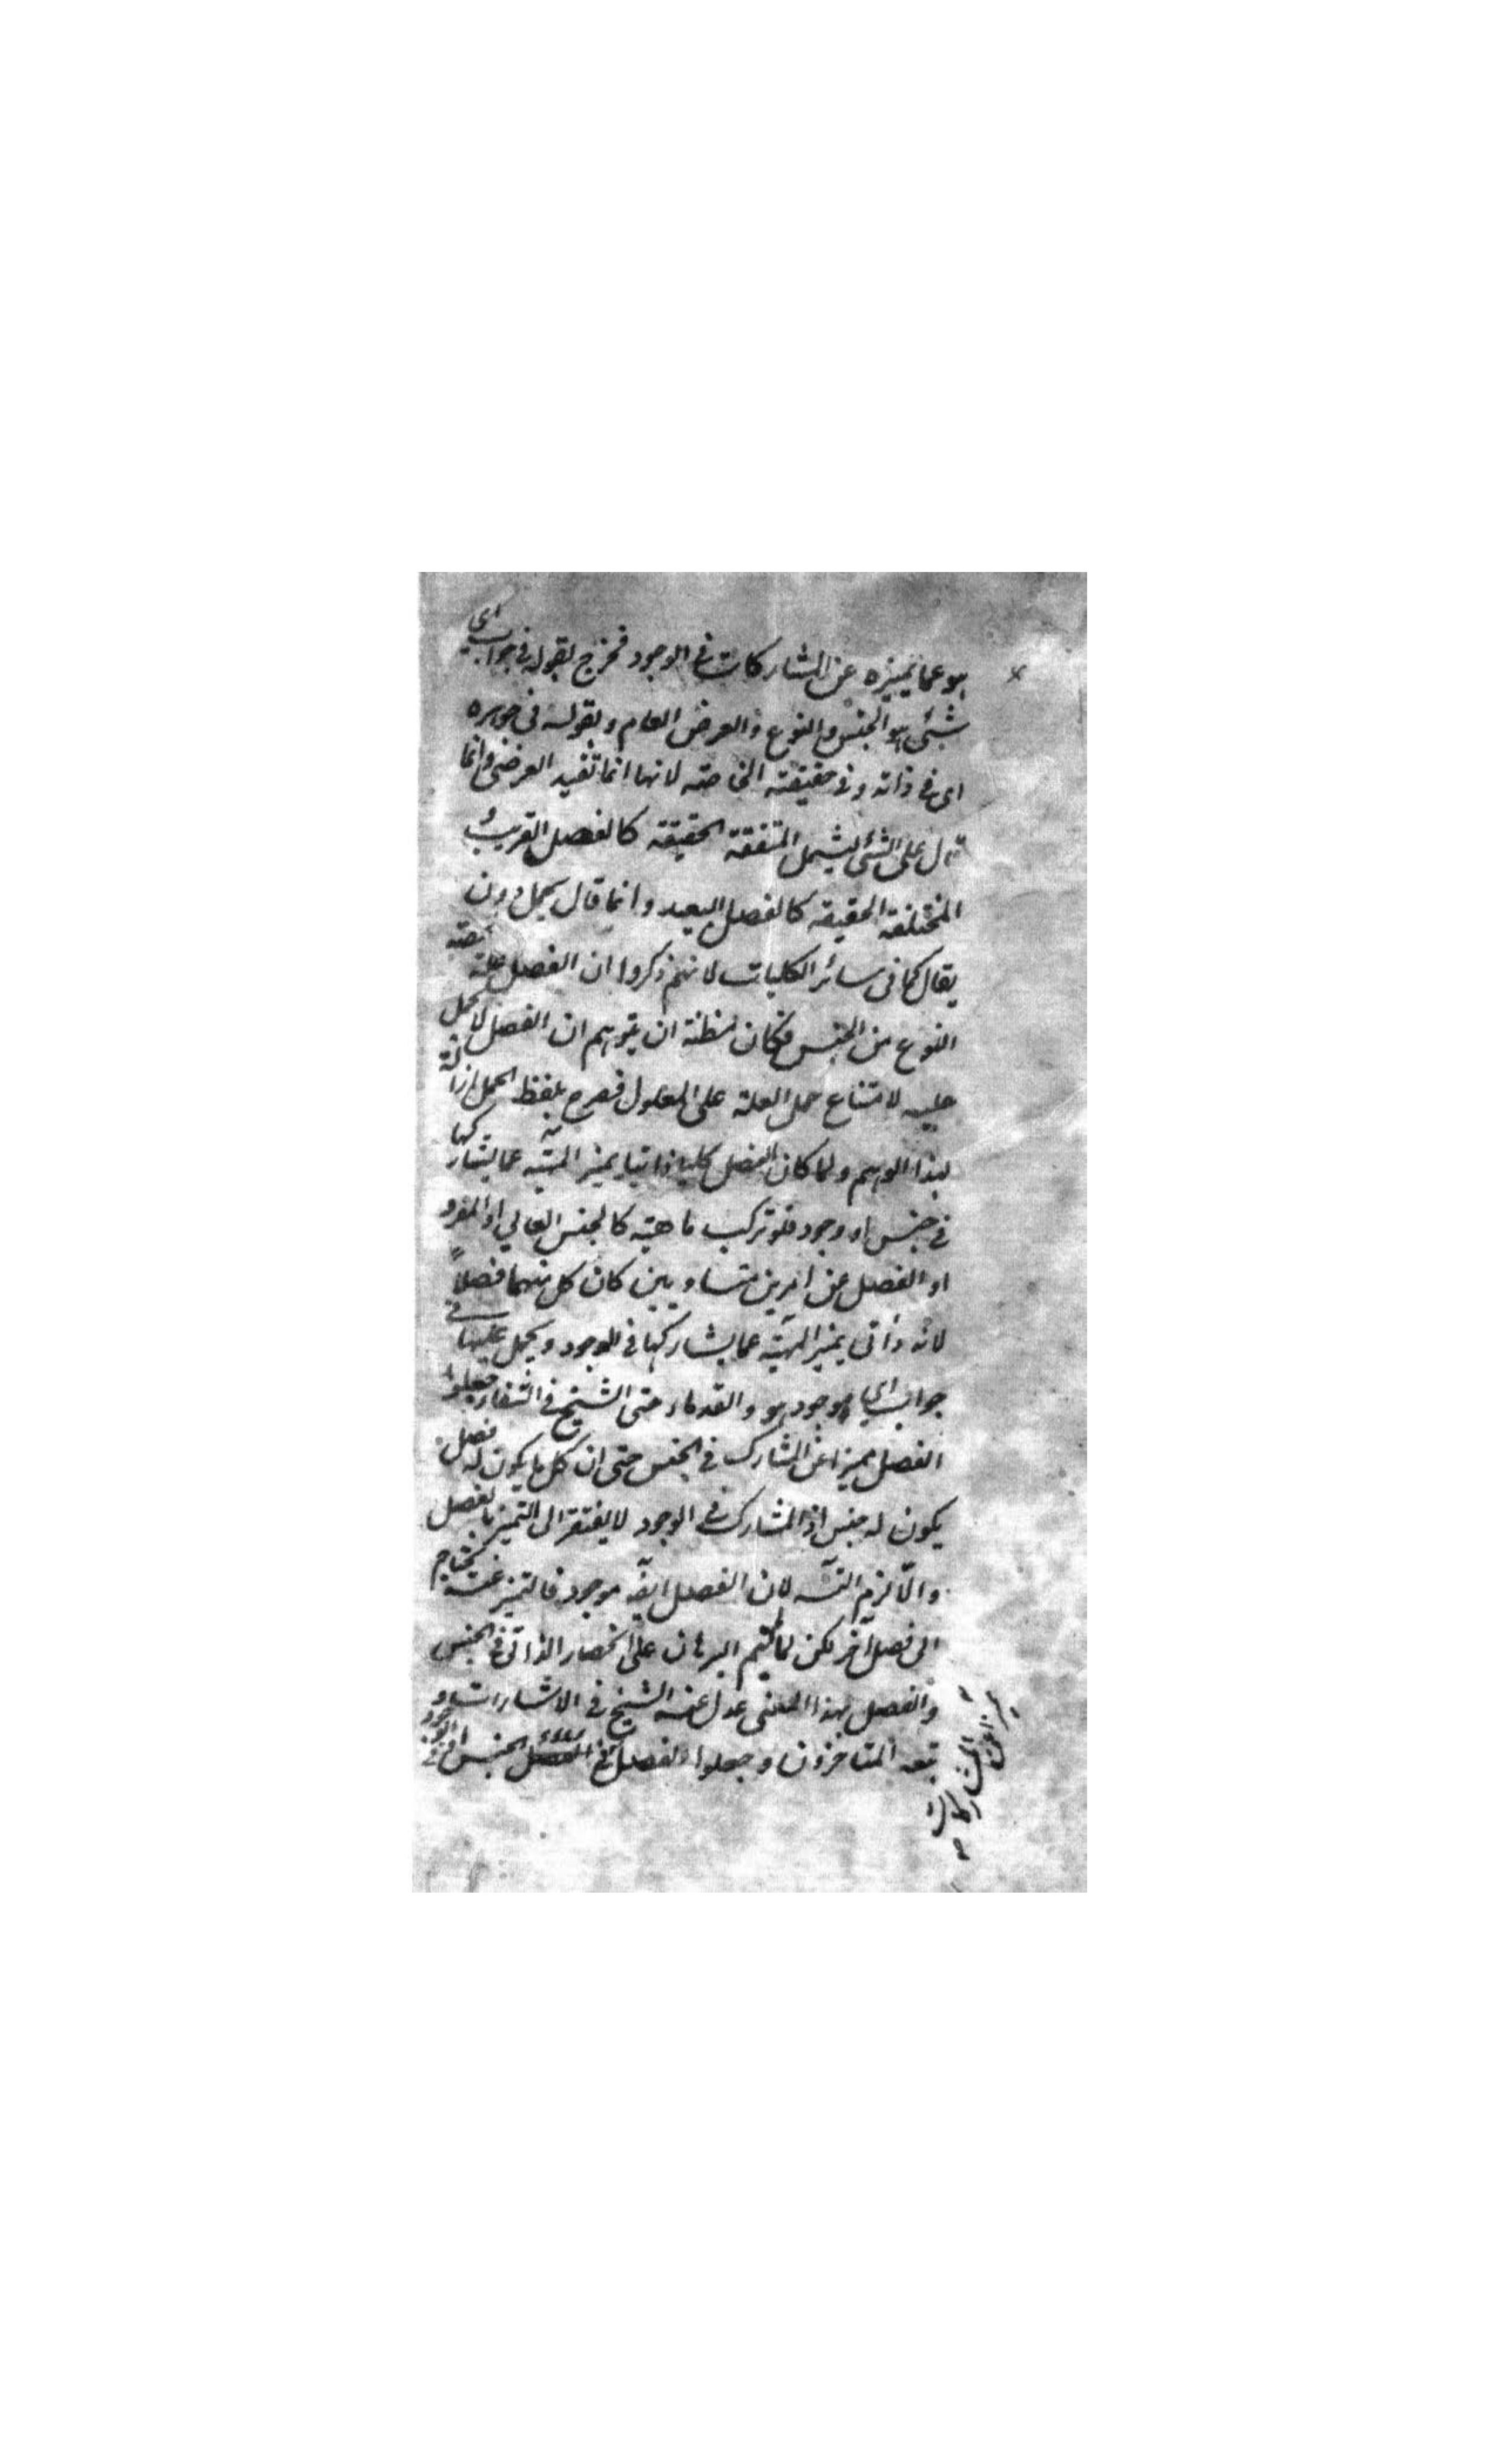 هو عما يميزه عن المشاركات في الوجود فخرج بقوله في جواب اى
شئ هو الجنس والنوع والعرض العام وبقوله في جوهره
اى في ذاته وفي حقيقته الخاصة لانها انما تفيد العرضى وانما
قال على الشئ ليشمل المتفقة الحقيقة كالفصل القريب و
المختلفة الحقيقة كالفصل البعيد وانما قال يحمل دون
يقال كما في سائر الكليات لانهم ذكروا ان الفصل علة لحصة
النوع من الجنس فكان لمظنة ان يتوهم ان الفصل لا يحمل
عليه لامتناع حمل العلة على المعلول فصرح بلفظ الحمل ازالة
لهذا الوهم ولما كان الفصل كليا ذاتيا يميز المهيّة عما يشاركها
في جنس او وجود فلو تركب ماهية كالجنس العالي او المفرد
او الفصل من امرين متساويين كان كل منهما فصلاً
لانه ذاتى يميز المهيّة عما يشاركها في الوجود ويحمل عليها في
جواب اى موجود هو والقدماء حتى الشيخ في الشفاء جعلوا
الفصل مميزا عن المشارك في الجنس حتى ان كل ما يكون له فصل
يكون له جنس اذ المشارك في الوجود لا يفتقر الى التميز بالفصل
والّا لزم التسّه لان الفصل ايضّه موجود فالتميز عنه يحتاج
الى فصل آخر لكن لما لم يتم البرهان على انحصار الذاتى في الجنس
والفصل بهذا المعنى عدل عنه الشيخ في الاشارات و
تبعه المتاخرون وجعلوا الفصل الجنس او في الوجود
يميز عن المشاركات